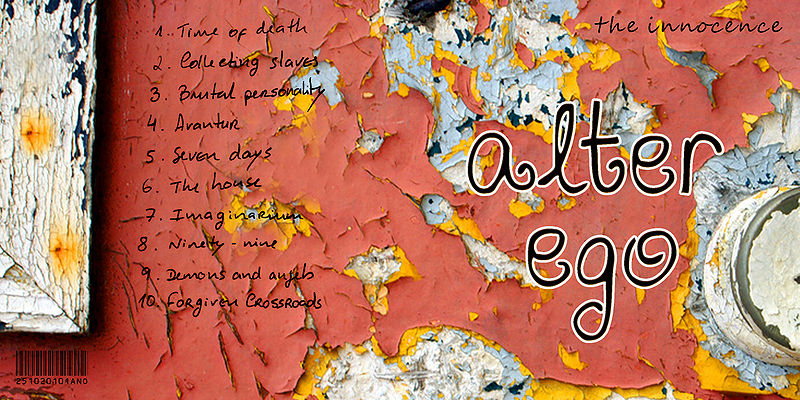 1. Time of death
2. Collecting slaves
3. Brutal personality
4. Avantur
5. Seven days
6. The house
7. Imaginarium
8. Ninety-nine
9. Demons and angels
10. Forgiven Crossroads
251020101AND
the innocence
alter
ego